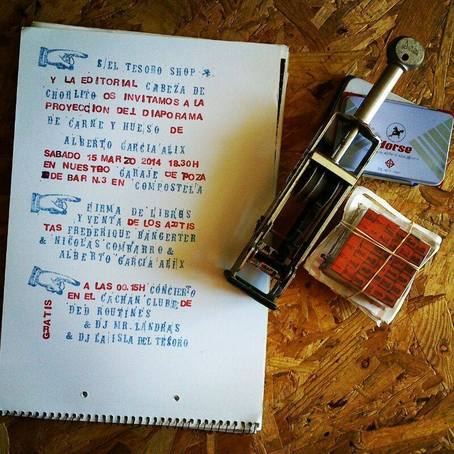 S/EL TESORO SHOP
Y LA EDITORIAL CABEZA DE
CHORLITO OS INVITAMOS A LA
PROYECCION DEL DIAPORAMA
DE CARNE Y HUESO DE
ALBERTO GARCIA ALIX
SABADO 15 MARZO 2014 18.30H
EN NUESTRO GARAJE DE POZA
DE BAR N.3 EN COMPOSTELA
FIRMA DE LIBROS
Y VENTA DE LOS ARTIS
TAS FREDERIQUE BANGERTER
& NICOLAS COMBARRO &
ALBERTO GARCIA ALIX
A LAS 00.15H CONCIERTO
EN EL CACHAN CLUB DE
DED ROUTINES
& DJ MR. LANDRAS
& DJ LA ISLA DEL TESORO
GRATIS
Horse